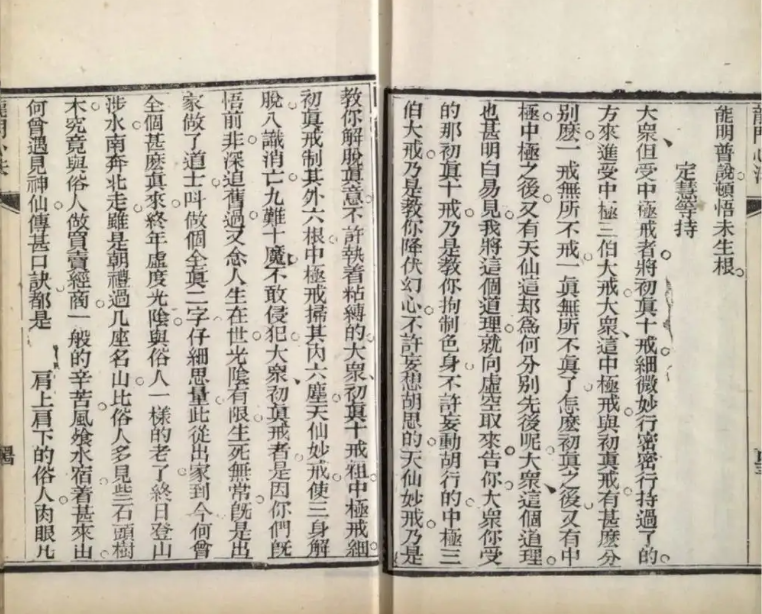 龍門心法
能明普說頓悟未生根
定慧等持
大衆但受中極戒者將初眞十戒細微妙行密密行持過了的
方來進受中極三伯大戒大衆這中極戒與初眞戒有甚麽分
別麽一戒無所不戒一眞無所不眞了怎麽初眞之後又有中
極中極之後又有天仙這却爲何分别先後呢大衆這個道理
也甚明白易見我將這個道理就向虛空取來告你大衆你受
的那初眞十戒乃是教你拘制色身不許妄動胡行的中極三
伯大戒乃是教你降伏幻心不許妄想胡思的天仙妙戒乃是
教你解脫眞意不許執着枯縛的大衆初眞十戒粗中極戒細
初眞戒制其外六根中極戒掃其內六塵天仙妙戒使三身解
脫八識消亡九難十魔不敢侵犯大衆初眞戒者是因你們旣
悟前非深追舊過又念人生在世光陰有限生死無常旣是出
家做了道士呌做個全眞二字仔細思量此從出家到今何曾
全個甚麽眞來終年虛度光陰與俗人一樣的老了終日登山
涉水南奔北走雖是朝禮過几座名山比俗人多見些石頭樹
木究竟與俗人做買賣經商一般的辛苦風飡水宿着甚來由
何曾遇見神仙傳甚口訣都是 肩上肩下的俗人肉眼凡
龍門心法